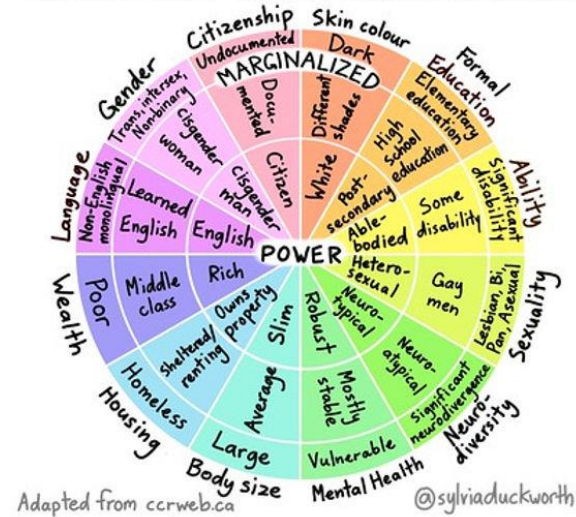 Citizenship
Undocumented
Docu-
mented
Citizen
Skin colour
Dark
Different
shades
White
Formal
Education
Elementary
education
High
School
education
Post-
secondary
Ability
Significant
disability
Some
disability
Able-
bodied
Sexuality
Lesbian, Bi,
Pan, Asexual
Gay
men
Hetero-
sexual
Neuro-
diversity
Significant
neurodivergence
Neuro-
atypical
Neuro-
typical
Mental Health
Vulnerable
Mostly
stable
Robust
Body size
Large
Average
Slim
Housing
Homeless
Sheltered/
renting
Owns
property
Wealth
Poor
Middle
class
Rich
Language
Non-English
monolingual
Learned
English
English
Gender
Trans, intersex,
Nonbinary
cisgender
woman
cisgender
man
MARGINALIZED
POWER
Adapted from ccrweb.ca
@sylviaduckworth